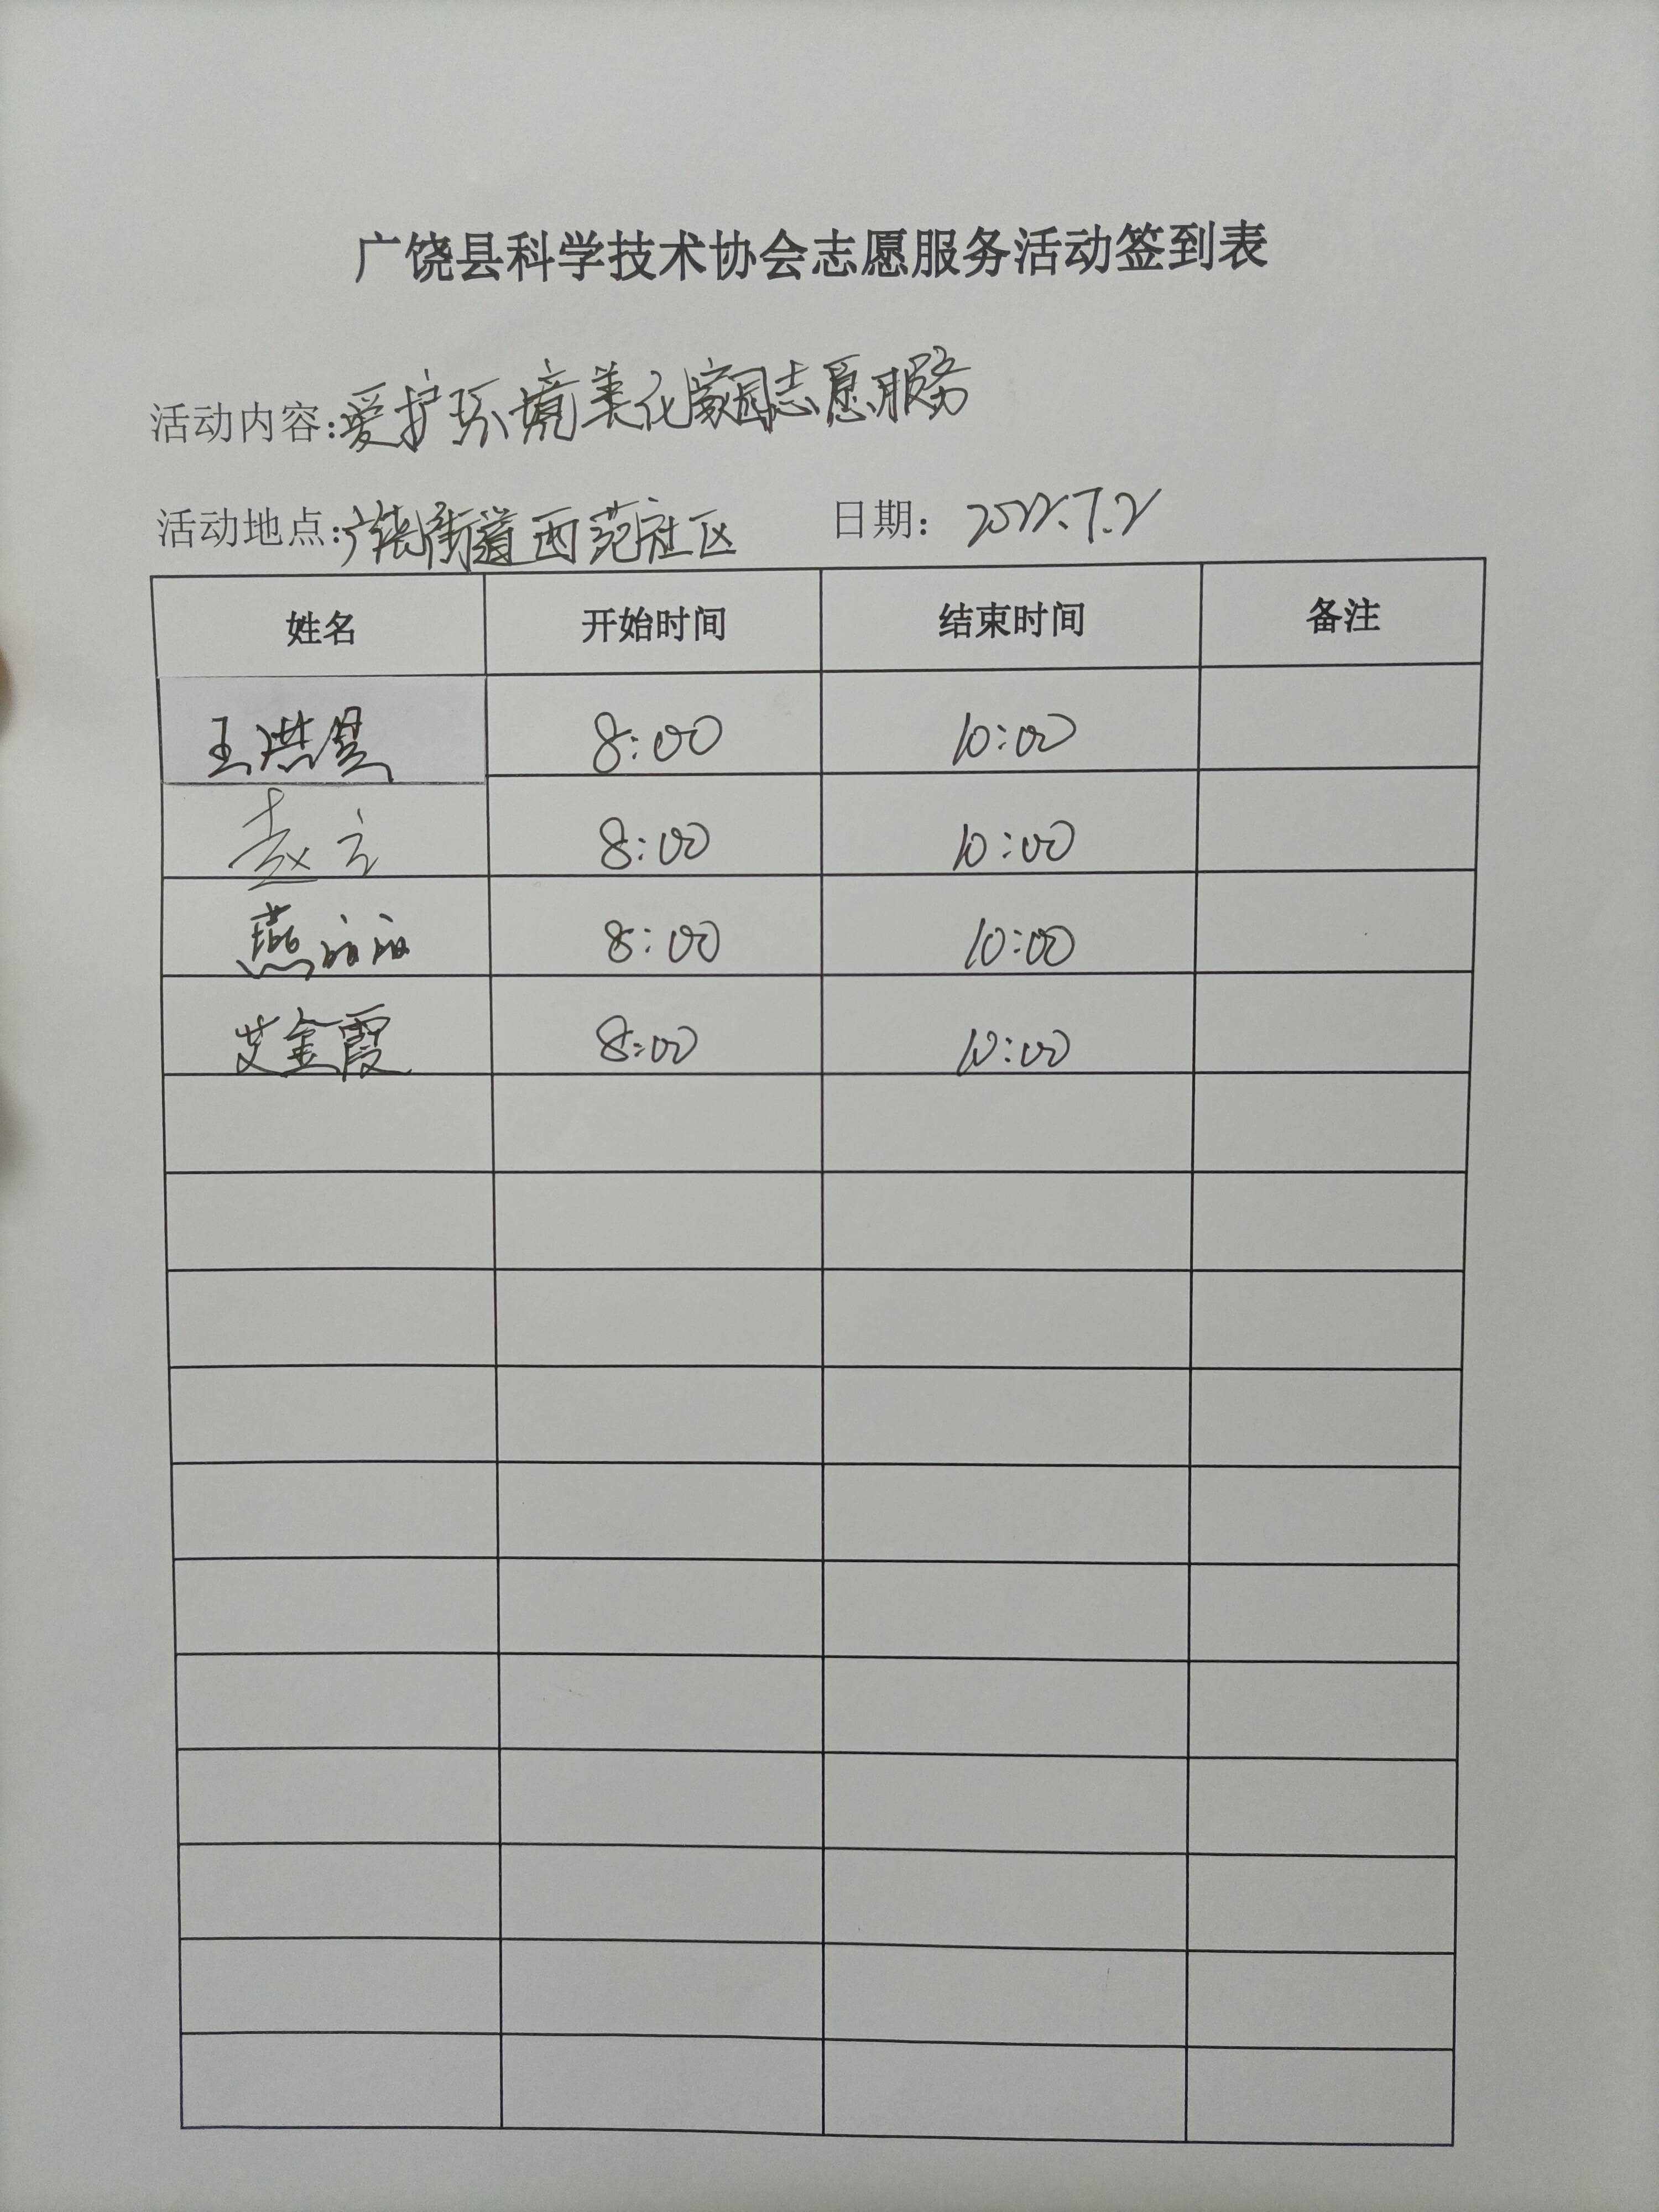 广饶县科学技术协会志愿服务活动签到表
活动内容:爱护环境美化家园志愿服务
活动地点:广饶街道西苑社区 日期: 2022.7.2
姓名 开始时间 结束时间 备注
王洪昱 8:00 10:00
赵立 8:00 10:00
燕丽丽 8:00 10:00
艾金霞 8:00 10:00